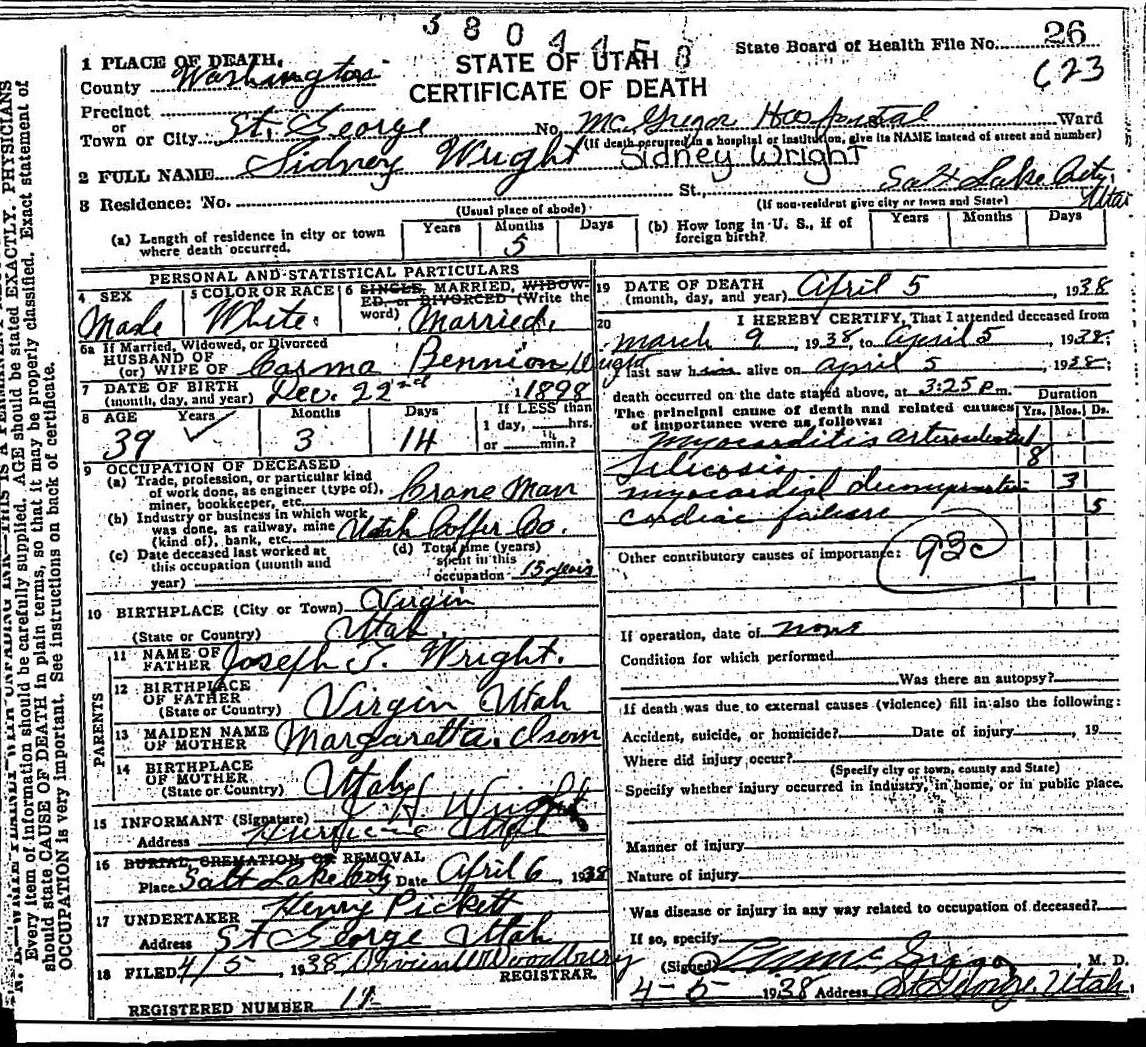 3804458
State Board of Health File No. 26
623
STATE OF UTAH
CERTIFICATE OF DEATH
1 PLACE OF DEATH
County Washington
Precinct
or
Town or City St. George No. Mc Gregor Hospital Ward
(If death occurred in a hospital or institution, give its NAME instead of street and number)
2 FULL NAME Sidney Wright Sidney Wright
3 Residence: No. St., Salt Lake City, Utah
(Usual place of abode) (If non-resident give city or town and State)
(a) Length of residence in city or town where death occurred. Years Months 5 Days
(b) How long in U. S., if of foreign birth? Years Months Days
PERSONAL AND STATISTICAL PARTICULARS
4 SEX Male
5 COLOR OR RACE White.
6 SINGLE, MARRIED, WIDOWED, or DIVORCED (Write the word) Married.
6a If Married, Widowed, or Divorced
HUSBAND OF
(or) WIFE OF Carma Bennion Wright
7 DATE OF BIRTH
(month, day, and year) Dec. 22nd 1898
8 AGE Years 39 Months 3 Days 14 If LESS than 1 day, hrs. or min.?
9 OCCUPATION OF DECEASED
(a) Trade, profession, or particular kind of work done, as engineer (type of), miner, bookkeeper, etc. Crane Man
(b) Industry or business in which work was done, as railway, mine (kind of), bank, etc. Utah Copper Co.
(c) Date deceased last worked at this occupation (month and year)
(d) Total time (years) spent in this occupation 15 years
10 BIRTHPLACE (City or Town) Virgin
(State or Country) Utah.
PARENTS
11 NAME OF FATHER Joseph T. Wright.
12 BIRTHPLACE OF FATHER
(State or Country) Virgin Utah
13 MAIDEN NAME OF MOTHER Margaretta Isom
14 BIRTHPLACE OF MOTHER
(State or Country) Utah
15 INFORMANT (Signature) J. H. Wright
Address Hurricane Utah
16 BURIAL, CREMATION, OR REMOVAL
Place Salt Lake City Date April 6, 1938
17 UNDERTAKER Henry Pickett
Address St George Utah
18 FILED 4/5, 1938 Woodbury
REGISTRAR.
REGISTERED NUMBER
19 DATE OF DEATH
(month, day, and year) April 5, 1938
20 I HEREBY CERTIFY, That I attended deceased from
March 9, 1938, to April 5, 1938;
last saw him alive on April 5, 1938;
death occurred on the date stated above, at 3:25 p.m.
The principal cause of death and related causes of importance were as follows:
Duration
Yrs. Mos. Ds.
Myocarditis
Silicosis 8
myocardial decompensation 3
Cardiac failure 5
Other contributory causes of importance: 93c
If operation, date of none
Condition for which performed
Was there an autopsy?
If death was due to external causes (violence) fill in also the following:
Accident, suicide, or homicide? Date of injury, 19
Where did injury occur?
(Specify city or town, county and State)
Specify whether injury occurred in industry, in home, or in public place.
Manner of injury
Nature of injury
Was disease or injury in any way related to occupation of deceased?
If so, specify
(Signed) McGregor, M. D.
4-5-1938 Address St George, Utah.
Every item of information should be carefully supplied. AGE should be stated EXACTLY. PHYSICIANS
should state CAUSE OF DEATH in plain terms, so that it may be properly classified. Exact statement of
OCCUPATION is very important. See instructions on back of certificate.